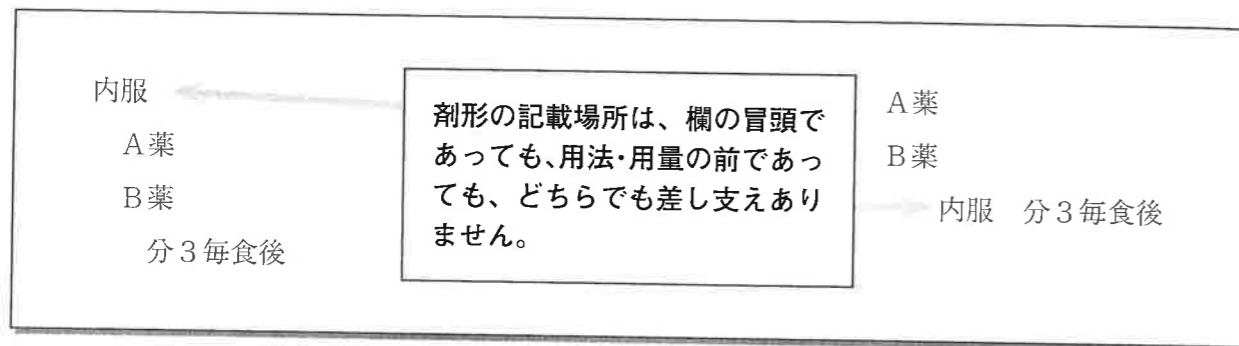 内服
A薬
B薬
分3毎食後
剤形の記載場所は、欄の冒頭で
あっても、用法・用量の前であっ
ても、どちらでも差し支えあり
ません。
A薬
B薬
内服 分3毎食後